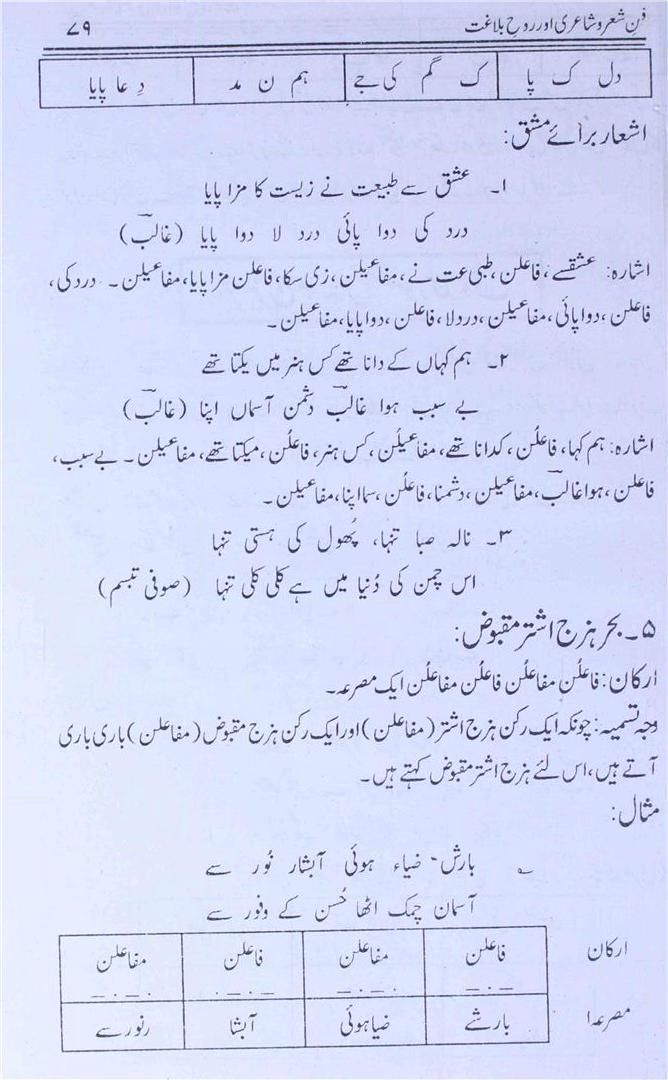 فنِ شعر و شاعری اور روحِ بلاغت ۷۹
دل ک پا ک گم کی جے ہم ن مد دِعا پایا
اشعار برائے مشق:
۱۔ عشق سے طبیعت نے زیست کا مزا پایا
درد کی دوا پائی درد لا دوا پایا (غالبؔ)
اشارہ: عشقسے، فاعلن، طبی عت نے، مفاعیلن، زی سکا، فاعلن مزا پایا، مفاعیلن۔ درد کی،
فاعلن، دوا پائی، مفاعیلن، درد لا، فاعلن، دوا پایا، مفاعیلن۔
۲۔ ہم کہاں کے دانا تھے کس ہنر میں یکتا تھے
بے سبب ہوا غالبؔ دشمن آسماں اپنا (غالبؔ)
اشارہ: ہم کہا، فاعلُن، کدانا تھے، مفاعیلُن، کس ہنر، فاعلُن، میکتا تھے، مفاعیلن۔ بے سبب،
فاعلن، ہوا غالبؔ، مفاعیلن، دشمنا، فاعلُن، سما اپنا، مفاعیلن۔
۳۔ نالہ صبا تنہا، پُھول کی ہستی تنہا
اس چمن کی دُنیا میں ہے کلی کلی تنہا (صوفی تبسم)
۵۔ بحر ہزج اشتر مقبوض:
ارکان: فاعلُن مفاعلُن فاعلُن مفاعلُن ایک مصرعہ۔
وجہ تسمیہ: چونکہ ایک رکن ہزج اشتر (مفاعلن) اور ایک رکن ہزج مقبوض (مفاعلن) باری باری
آتے ہیں، اس لئے ہزج اشتر مقبوض کہتے ہیں۔
مثال:
؎ بارش ضیاء ہوئی آبشار نُور سے
آسمان چمک اٹھا حُسن کے وفور سے
ارکان فاعلن مفاعلن فاعلن مفاعلن
–.– –.–. –.–. –.–.
مصرعہ۱ بارشے ضیا ہوئی آبشا رنور سے